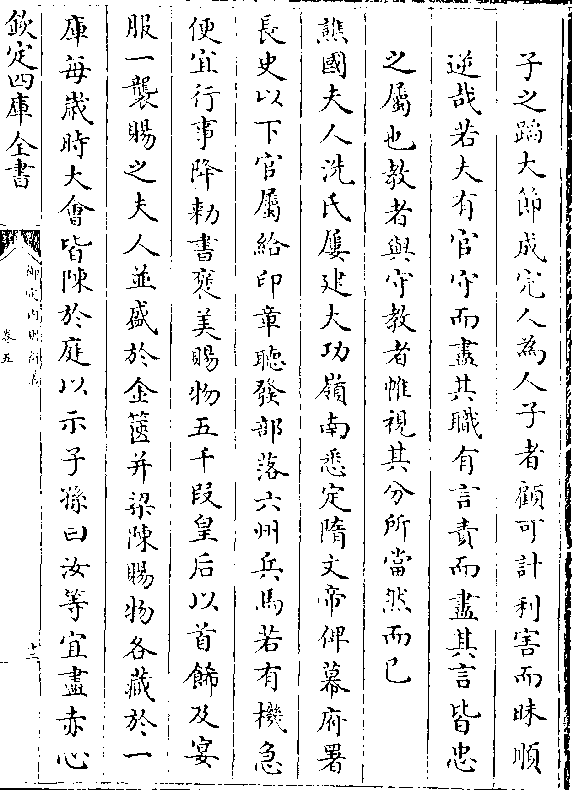 子之蹈大節成完人為人子者顧可計利害而昧順
逆哉若夫有官守而盡其職有言責而盡其言皆忠
之屬也教者與守教者惟視其分所當然而已
譙國夫人洗氏屢建大功嶺南悉定隋文帝俾幕府署
長史以下官屬給印章聽發部落六州兵馬若有機急
便宜行事降勅書褒美賜物五千段皇后以首飾及宴
服一襲賜之夫人並盛於金篋并梁陳賜物各藏於一
庫每歲時大會皆陳於庭以示子孫曰汝等宜盡赤心
欽定四庫全書
卷五